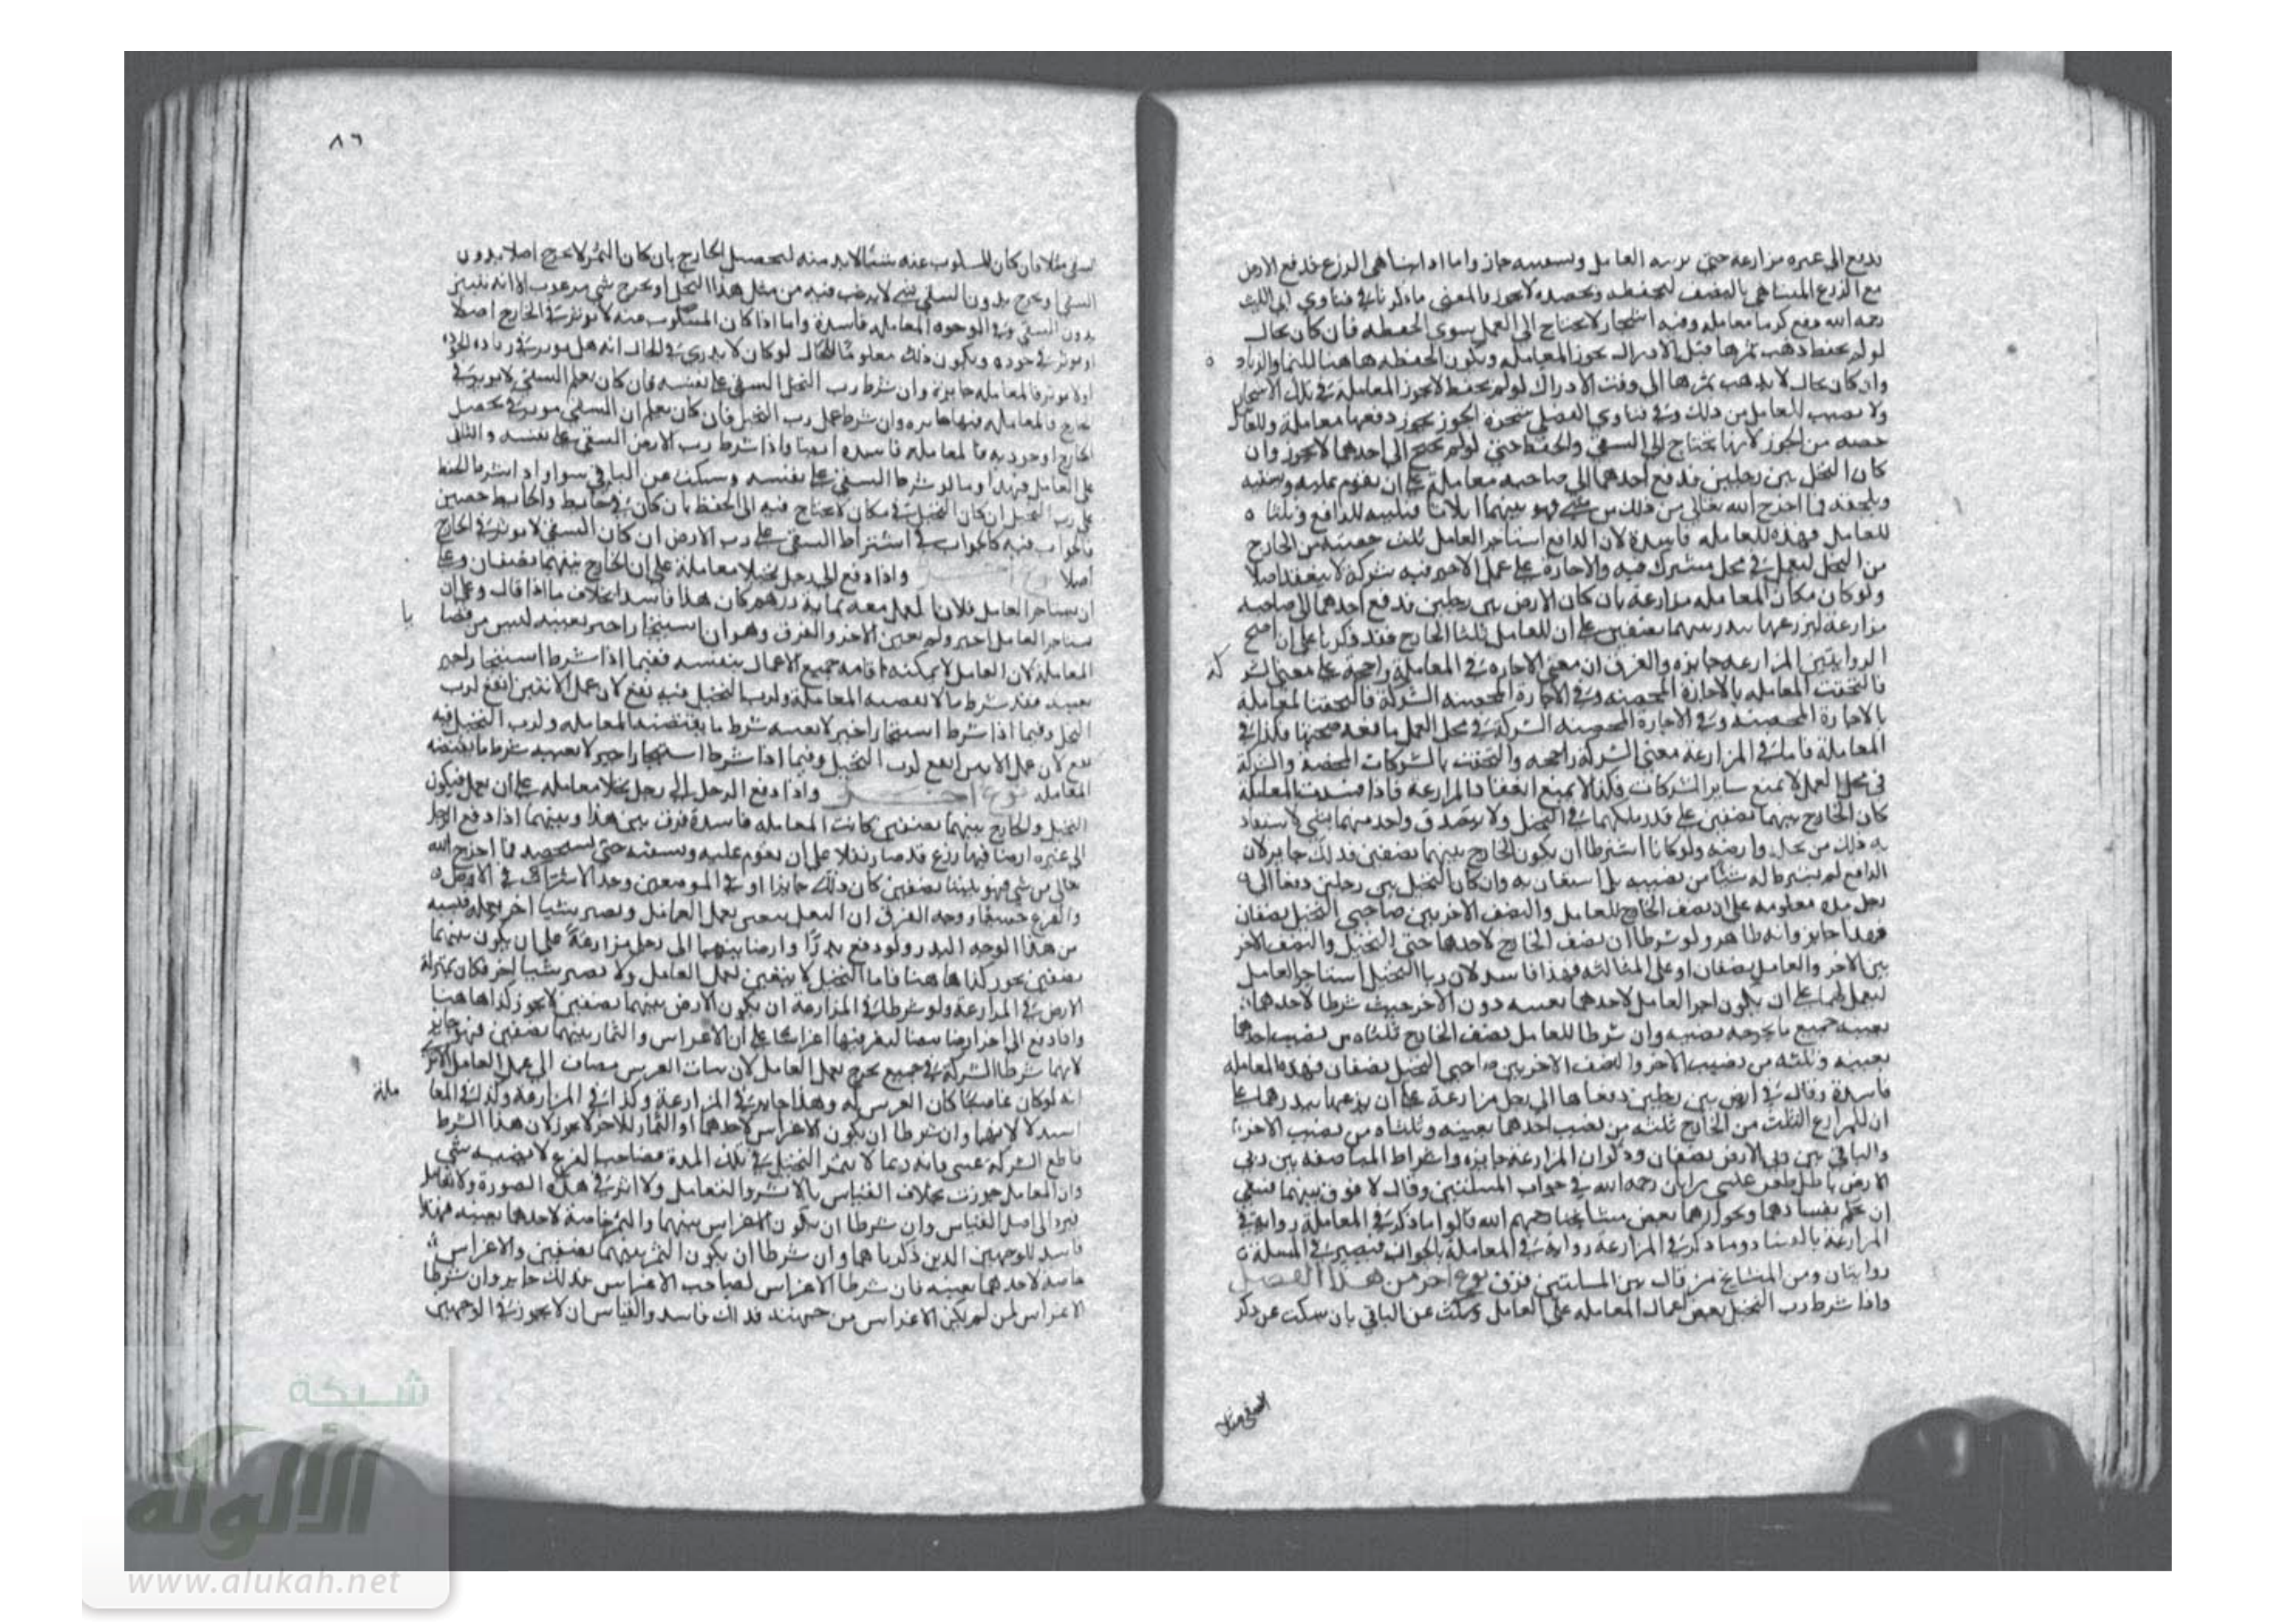 تدفع الى غيره مزارعة حتى يربيه العامل ويسقيه جاز واما اذا تناهى الزرع فدفع الارض
مع الزرع المتناهي بالنصف ليحفظه ويحصده لا يجوز والمعنى ما ذكرنا في فتاوي ابي الليث
رحمه الله دفع كرما معاملة وفيه اشجار لا يحتاج الى العمل سوى الحفظ فان كان بحال
لو لم يحفظ ذهب ثمرها قبل الادراك يجوز المعاملة ويكون الحفظ هاهنا للنما والزياد ة
وان كان بحال لا يذهب ثمرها الى وقت الادراك لو لم يحفظ لا يجوز المعاملة في تلك الاشجار
ولا نصيب للعامل من ذلك وفي فتاوي الفضلي شجرة الجوز يجوز دفعها معاملة وللعامل
حصه من الجوز لانها يحتاج الى السقي والحفظ حتى لو لم يحتج الى احدهما لا يجوز وان
كان النخل بين رجلين فدفع احدهما الى صاحبه معاملة على ان يقوم عليه ويسقيه
ويلحقه فما اخرج الله تعالى من ذلك من شي فهو بينهما اثلاثا فثلثيه للدافع وثلثا ه
للعامل فهذه المعاملة فاسدة لان الدافع استاجر العامل ثلث حصته من الخارج
من النخل ليعمل في محل مشترك فيه والاجارة على عمل الاجير فيه شركة لا ينعقد اصلا
ولو كان مكان المعاملة مزارعة بان كان الارض بين رجلين فدفع احدهما الى صاحبه
مزارعة ليزرعها ببذر بينهما نصفين على ان للعامل ثلثا الخارج فقد ذكرنا على ان اصح
الروايتين المزارعة جايزه والفرق ان معنى الاجاره في المعاملة راجحة على معنى الشر كة
فالتحقت المعاملة بالاجازة المحضه وفي الاجارة المحضه الشركة فالتحقنا لمعاملة
بالاجارة المحضه وفي الاجارة المحضه الشركة في محل العمل مانعه صحتها فكذا في
المعاملة فاما في المزارعة معنى الشركة راجحه والتحقت بالشركات المحضة والشركة
في محل العمل لا يمنع ساير الشركات فكذا لا يمنع انعقاد المزارعة فاذا فسدت المعاملة
كان الخارج بينهما نصفين على قدر ملكهما في النخيل ولا يتصدق واحد منهما بشي لاستفاد
به ذلك من نخله وارضه ولو كانا اشترطا ان يكون الخارج بينهما نصفين فذلك جايز لان
الدافع لم يشرط له شيئا من نصيبه بل استعان به وان كان النخيل بين رجلين دفعا الى
رجل مده معلومه على ان نصف الخارج للعامل والنصف الاخر بين صاحبي النخيل نصفان
فهذا جايز وانه ظاهر ولو شرطا ان نصف الخارج لاحدهما حتى النخيل والنصف الاخر
بين الاخر والعامل نصفان او على المثالثة فهذا فاسد لان ربا النخيل استاجرا العامل
ليعمل لهما على ان يكون اجر العامل لاحدهما بعينه دون الاخر حيث شرطا لاحدهما
بعينه جميع ما يخرجه نصيبه وان شرطا للعامل نصف الخارج ثلثاه من نصيب احدهما
بعينه وثلثه من نصيب الاخر والنصف الاخر بين صاحبي النخيل نصفان فهذه المعاملة
فاسدة وقال في ارض بين رجلين دفعاها الى رجل مزارعة على ان يزرعها ببذرهما على
ان للمزارع الثلث من الخارج ثلثه من نصيب احدهما بعينه وثلثاه من نصيب الاخر
والباقي بين ربي الارض نصفان وذكر ان المزارعة جايزه واشراط المناصفه بين ربي
الارض باطل طعن عيسى بن ابان رحمه الله في جواب المسئلتين وقال لا فرق بينهما فينبغي
ان يحكم بفسادهما وبجوازهما بعض مشايخنا رحمهم الله قالوا ما ذكر في المعاملة رواية في
المزارعة بالفساد وما ذكر في المزارعة رواية في المعاملة بالجواز فيصير في المسلة
روايتان ومن المشايخ من قال بين المسلتين فرق نوع اخر من هذا الفصل
واذا شرط رب النخيل بعض اعمال المعاملة على العامل وسكت عن الباقي بان سكت عن ذكر
السقي مثلا
٨٦
السقي مثلا فان كان المسكوب عنه شيئا لا بد منه لتحصيل الخارج بان كان الثمر لا يخرج اصلا بدون
السقي او يخرج بدون السقي شي لا يرغب فيه من مثل هذا النخل او يخرج شي مرغوب الا انه يتيبس
بدون السقي وفي الوجوه المعاملة فاسدة واما اذا كان المسكوب عنه لا يوثر في الخارج اصلا
او يوثر في جوده ويكون ذلك معلوما للحال لو كان لا يدري في الحال انه هل يوثر في زياده الجودة
او لا يوثر فالمعاملة جايزة وان شرط رب النخل السقي على نفسه فان كان يعلم السقي لا يوثر في
الخارج فالمعاملة فيها جايزه وان شرط عمل رب النخيل فان كان يعلم ان السقي يوثر في تحصيل
الخارج او جودته فالمعاملة فاسده ايضا واذا شرط رب الارض السقي على نفسه والثاني
على العامل فهذا وما لو شرط السقي على نفسه وسكت عن الباقي سوا واذا اشترط الحفظ
على رب النخيل ان كان النخيل في مكان لا يحتاج فيه الى الحفظ بان كان في حايط والحايط حصين
فالجواب فيه كالجواب في اشتراط السقي على رب الارض ان كان السقي لا يوثر في الخارج
اصلا نوع اخر واذا دفع الى رجل نخيلا معاملة على ان الخارج بينهما نصفان وعلى
ان يستاجر العامل فلانا ليعمل معه بماية درهم كان هذا فاسدا بخلاف ما اذا قال وعلى ان
يستاجر العامل اجير ولم يعين الاجر والفرق وهو ان استيجار اجير بعينه ليس من قضا يا
المعاملة لان العامل لا يمكنه اقامه جميع الاعمال بنفسه ففيما اذا شرط استيجار اجير
بعينه فقد شرط ما لا تقضيه المعاملة ولرب النخيل فيه نفع لان عمل الاثنين انفع لرب
النخل وفيما اذا شرط استيجار اجير لا بعينه شرط ما يقتضيه المعاملة ولرب النخيل فيه
نفع لان عمل الاثنين انفع لرب النخيل وفيما اذا شرط استيجار اجير لا بعينه شرط ما يقتضيه
المعامله نوع اخر واذا دفع الرجل الى رجل نخلا معاملة على ان يعمل فيكون
النخيل والخارج بينهما نصفين كانت المعاملة فاسدة فرق بين هذا وبينهما اذا دفع الرجل
الى غيره ارضا فيها زرع قد صار بقلا على ان يقوم عليه ويسقيه حتى يستحصد فما اخرج الله
تعالى من شي فهو بيننا نصفين كان ذلك جايزا وفي الموضعين وجد الاشتراك في الارض
والفرع جميعا ووجه الفرق ان البقل يتغير بعمل العامل ويصير شيئا اخر بعمله فشبه
من هذا الوجه البدر ولو دفع بدرا وارضا بينهما الى رجل مزارعة على ان يكون بينهما
نصفين يجوز كذا هاهنا فاما النخيل لا يتغير بعمل العامل ولا يصير شيئا اخر فكان بمنزلة
الارض في المزارعة ولو شرطا في المزارعة ان يكون الارض بينهما نصفين لا يجوز كذا هاهنا
واذا دفع الى اخر ارضا بيضا ليغرس فيها اغراسا على ان الاغراس والثمار بينهما نصفين فهو جايز
لانهما شرطا الشركة في جميع يخرج بعمل العامل لان نبات الغرس مضاف الى عمل العامل الا ترى
انه لو كان غاصبا كان الغرس له وهذا جايز في المزارعة وكذا في المزارعة وكذلك في المعا ملة
استدلالا بهما وان شرطا ان يكون الاغراس لاحدهما او الثمار للاخر لا يجوز لان هذا الشرط
قاطع الشركة عسى فانه ربما لا يثمر النخيل في تلك المدة فصاحب الفرع لا يصيبه شي
وان المعامل جوزت بخلاف القياس بالاثر والتعامل ولا اثر في هذه الصورة ولا تعامل
فيرد الى اصل القياس وان شرطا ان يكون الاغراس بينهما والثمر خاصة لاحدهما بعينه فهذا
فاسد للوجهين الذين ذكرناهما وان شرطا ان يكون الثمر بينهما نصفين والاغراس
خاصة لاحدهما بعينه فان شرطا الاغراس لصاحب الاغراس فذلك جايز وان شرطا
الاغراس لمن لم يكن الاغراس من جهته فذلك فاسد والقياس ان لا يجوز في الوجهين
شبكة
الألوكة
www.alukah.net